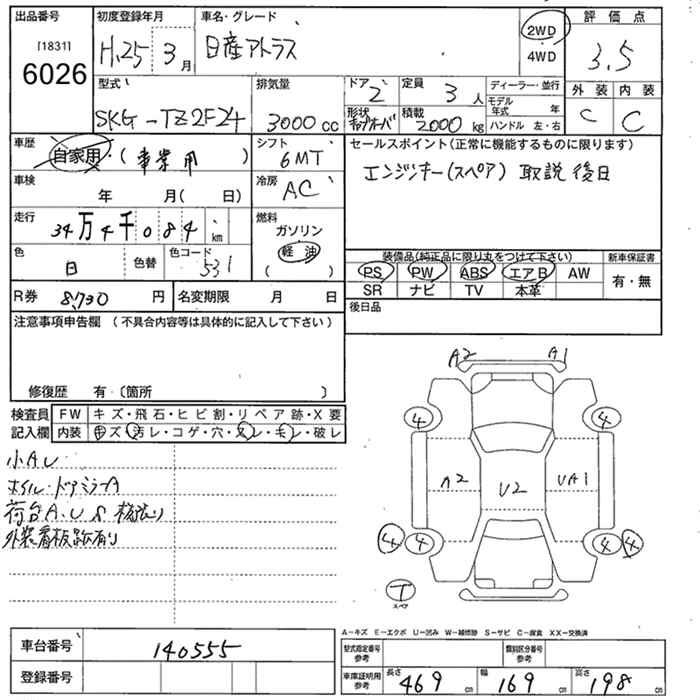 出品番号 初度登録年月 車名・グレード 評価点
[1831] 6026 H.25 3月 日産アトラス 2WD 4WD 3.5
外装 内装
C C
型式 排気量 ドア 定員 ディーラー・並行
SKG-TZ2F24 3000cc 2 3人 モデル年式 年
形状 積載 2000kg ハンドル 左・右
車歴 自家用・(事業用) シフト 6MT
セールスポイント(正常に機能するものに限ります)
エンジンキー(スペア) 取説 後日
車検 年 月(日) 冷房 AC
走行 34万4千084km 燃料 ガソリン 軽油 ( )
色 白 色替 色コード 531
装備品(純正品に限り丸をつけて下さい) 新車保証書
PS PW ABS エアB AW 有・無
SR ナビ TV 本革
R券 8,730円 名変期限 月 日
後日品
注意事項申告欄(不具合内容等は具体的に記入して下さい)
修復歴 有・〔箇所 〕
検査員 FW キズ・飛石・ヒビ割・リペア跡・X要
記入欄 内装 キズ・汚レ・コゲ・穴・スレ・モレ・破レ
小AU
ホイル・ドアミラーA
荷台A.U.S
外装看板跡有り
A2 A1
4 4
A2 U2 UA1
4 4 4 4
T
スペア
A-キズ E-エクボ U-凹み W-補修跡 S-サビ C-腐食 XX-交換済
車台番号 140555
登録番号
型式指定番号 参考 類別区分番号 参考
車庫証明用 参考 長さ 469cm 幅 169cm 高さ 198cm